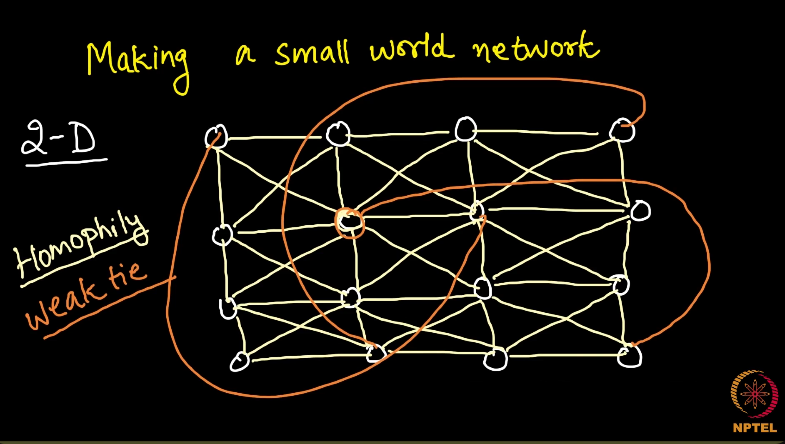 Making a small world network
2-D
Homophily
weak tie
NPTEL